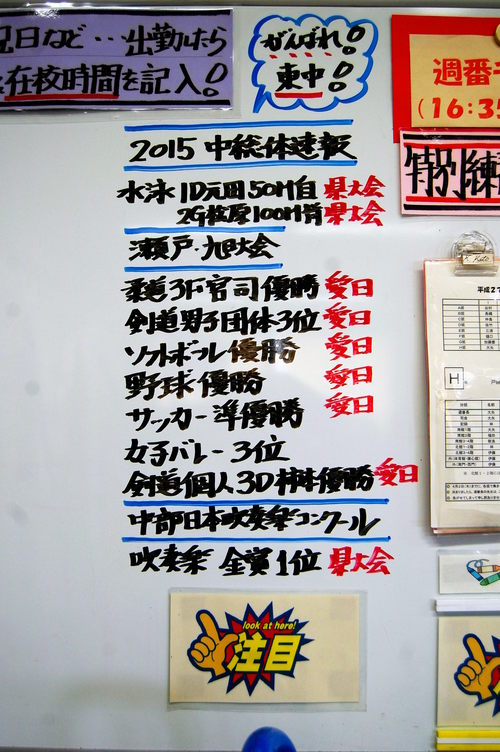 兄日など…出勤したら
在校時間を記入!
がんばれ!
東中!
週番
(16:35
特別練
2015 中総体速報
水泳 1D元田50M自 県大会
2G 100M背 県大会
瀬戸・旭大会
柔道3F官司優勝 愛日
剣道男子団体3位 愛日
ソフトボール優勝 愛日
野球優勝 愛日
サッカー準優勝 愛日
女子バレー3位
剣道個人3D 優勝 愛日
中部日本吹奏楽コンクール
吹奏楽 金賞1位 県大会
look at here!
注目
平成27
H